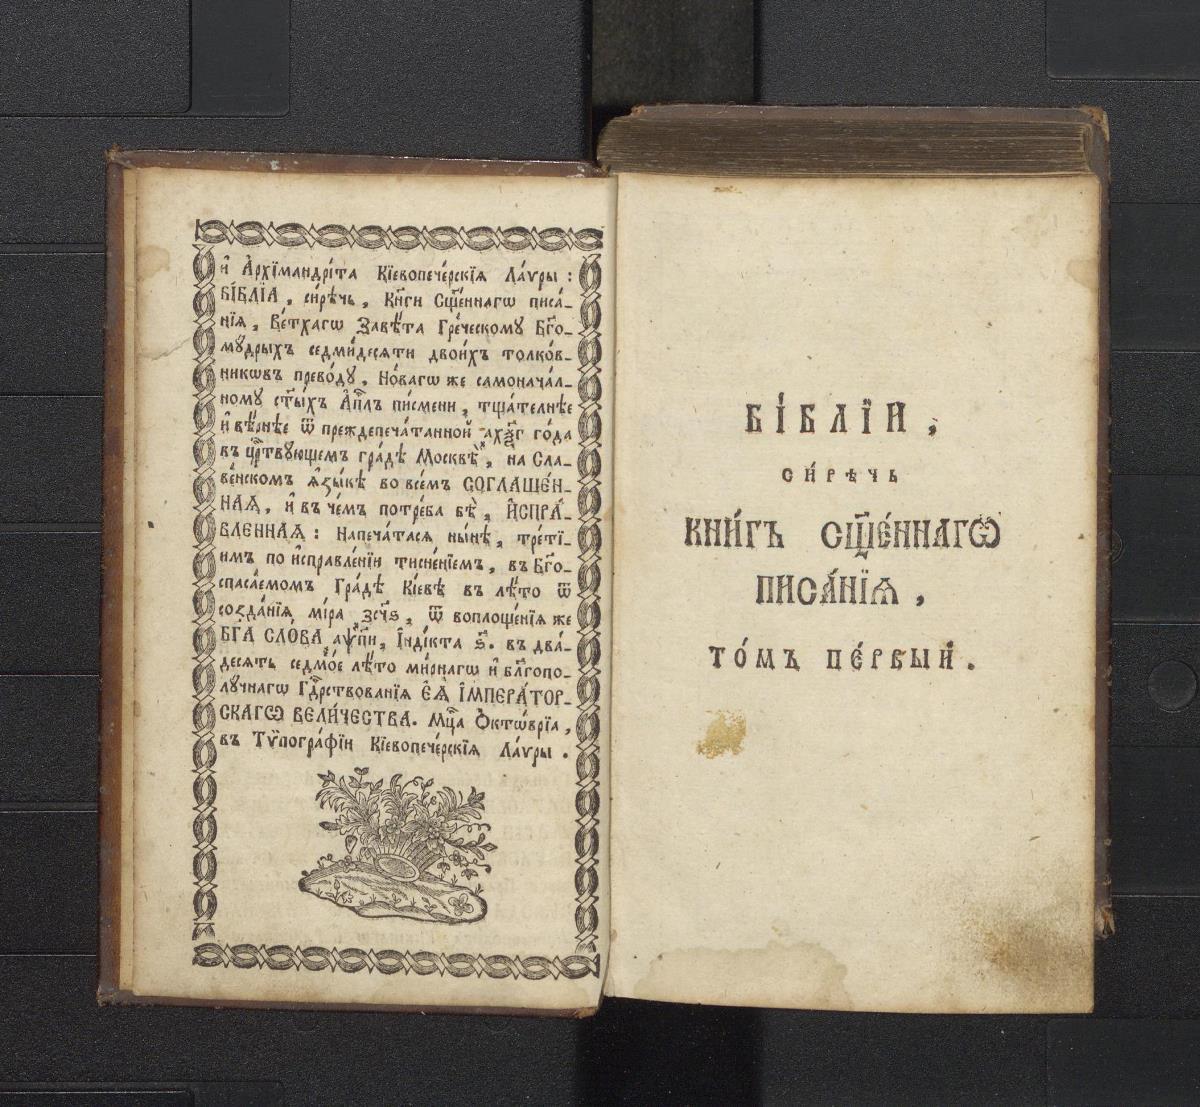 и҆ А҆рхїмандрі́та Кїевопече́рскїѧ Ла́ѵры :
БІ́БЛІА , си́рѣчь , Кни҃ги Сщ҃е́ннагѡ писа́-
нїѧ , Ве́тхагѡ Завѣ́та Гре́ческомꙋ Бг҃о-
мꙋ́дрыхъ седми́десѧти двои́хъ толко́в-
никѡвъ прево́дꙋ , Но́вагѡ же самонача́л-
номꙋ ст҃ы́хъ А҆пⷭ҇лъ пи́смени , тща́телнѣе
и҆ вѣ́рнѣе ѿ преждепеча́танной ҂ахѯ҃г го́да
въ црⷭ҇твꙋющемъ гра́дѣ Москвѣ̀ , на Сла-
ве́нскомъ ꙗ҆зы́кѣ во все́мъ СОГЛАШЕ́Н-
НАѦ , и҆ въ че́мъ потре́ба бѣ̀ , И҆СПРА́-
ВЛЕННАѦ : Напеча́тасѧ ны́нѣ , тре́тї-
имъ по и҆справле́нїи тисне́нїемъ , въ Бг҃о-
спаса́емомъ Гра́дѣ Кі́евѣ въ лѣ́то ѿ
созда́нїѧ мі́ра ҂зсч҃ѕ , ѿ воплоще́нїѧ же
БГ҃А СЛО́ВА ҂аѱп҃и , І҆нді́кта ѕ҃ . въ два́-
десѧть седмо́е лѣ́то ми́рнагѡ и҆ бл҃гопо-
лꙋ́чнагѡ Гдⷭ҇рствованїѧ Е҆Ѧ̀ І҆МПЕРА́ТОР-
СКАГѠ ВЕЛИ́ЧЕСТВА . Мцⷭ҇а Ѻ҆ктѡ́врїа ,
въ Тѷпогра́фїи Кїевопече́рскїѧ Ла́ѵры .
БІ́БЛЇИ ,
СИ́РѢЧЬ
КНИ́ГЪ СЩ҃Е́ННАГѠ
ПИСА́НЇѦ ,
ТО́МЪ ПЕ́РВЫЙ .